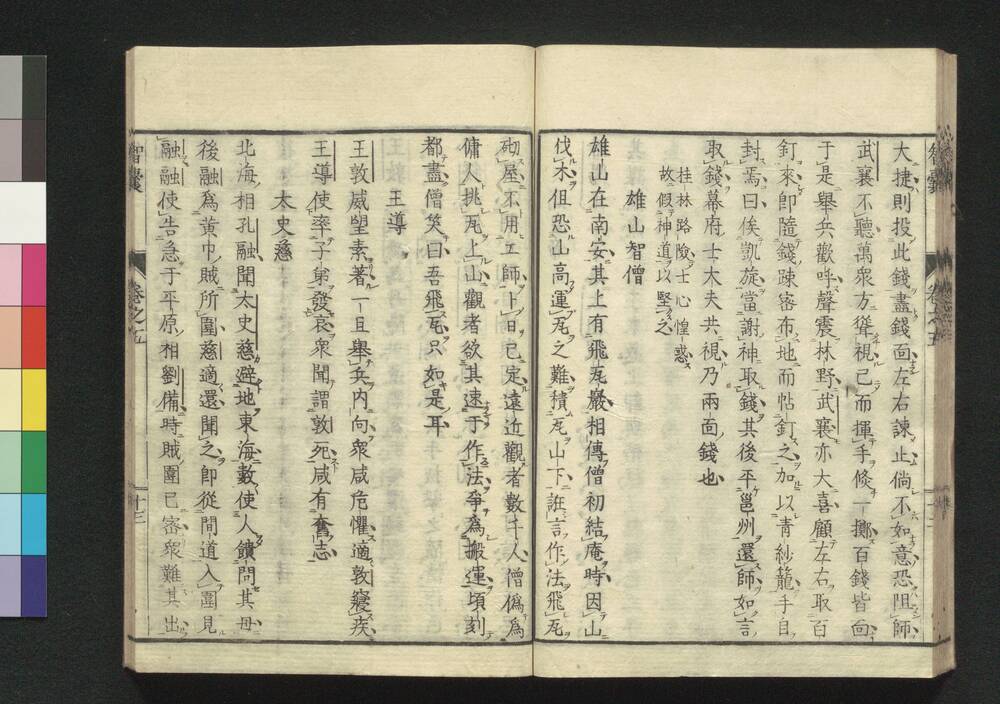 大捷則投此錢盡錢面左右諫止倘不如意恐阻師
武襄不聽萬衆方聳視已而揮手倐一擲百錢皆面
于是舉兵歡呼聲震林野武襄亦大喜顧左右取百
釘來卽隨錢踈宻布地而帖釘之加以青紗籠手自
封焉曰俟凱旋當謝神取錢其後平邕州還師如言
取錢幕府士大夫共視乃兩面錢也
桂林路險士心惶惑
故假神道以堅之
雄山智僧
雄山在南安其上有飛瓦巖相傳僧初結庵時因山
伐木但恐山高運瓦之難積瓦山下誑言作法飛瓦
砌屋不用工師卜日已定遠近觀者數千人僧僞爲
傭人挑瓦上山觀者欲其速于作法爭爲搬運頃刻
都盡僧笑曰吾飛瓦只如是耳
王導
王敦威望素著一旦舉兵內向衆咸危懼適敦寢疾
王導使率子弟發哀衆聞謂敦死咸有奮志
太史慈
北海相孔融聞太史慈避地東海數使人饋問其母
後融爲黄巾賊所圍慈適還聞之卽從間道入圍見
融融使告急于平原相劉備時賊圍已宻衆難其出
智囊
卷之五
十三